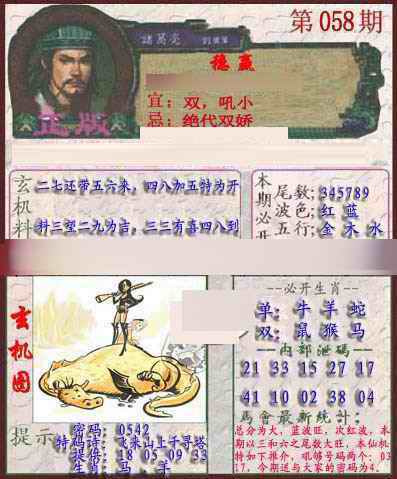 第058期
諸葛亮
稳赢
宜：双，吼小
忌：绝代双娇
正版
玄机料
二七还带五六来，四八加五特为开
料三望二九为吉，三三有喜四八到
本期必开
尾数：345789
波色：红 蓝
五行：金 木 水
玄机图
必开生肖
单：牛 羊 蛇
双：鼠 猴 马
内部泄码
21 33 15 27 17
41 10 02 38 04
馬會最新統計：
总分为大，蓝波旺，次红波，本
期以三和六之尾数大旺，本仙机
特如下推介，吼够号码两个：03
17，今期送与大家的密码为4。
提示
密码：0542
特码诗：飞来山上千寻塔
提供：18 05 09 33
生肖：马、羊